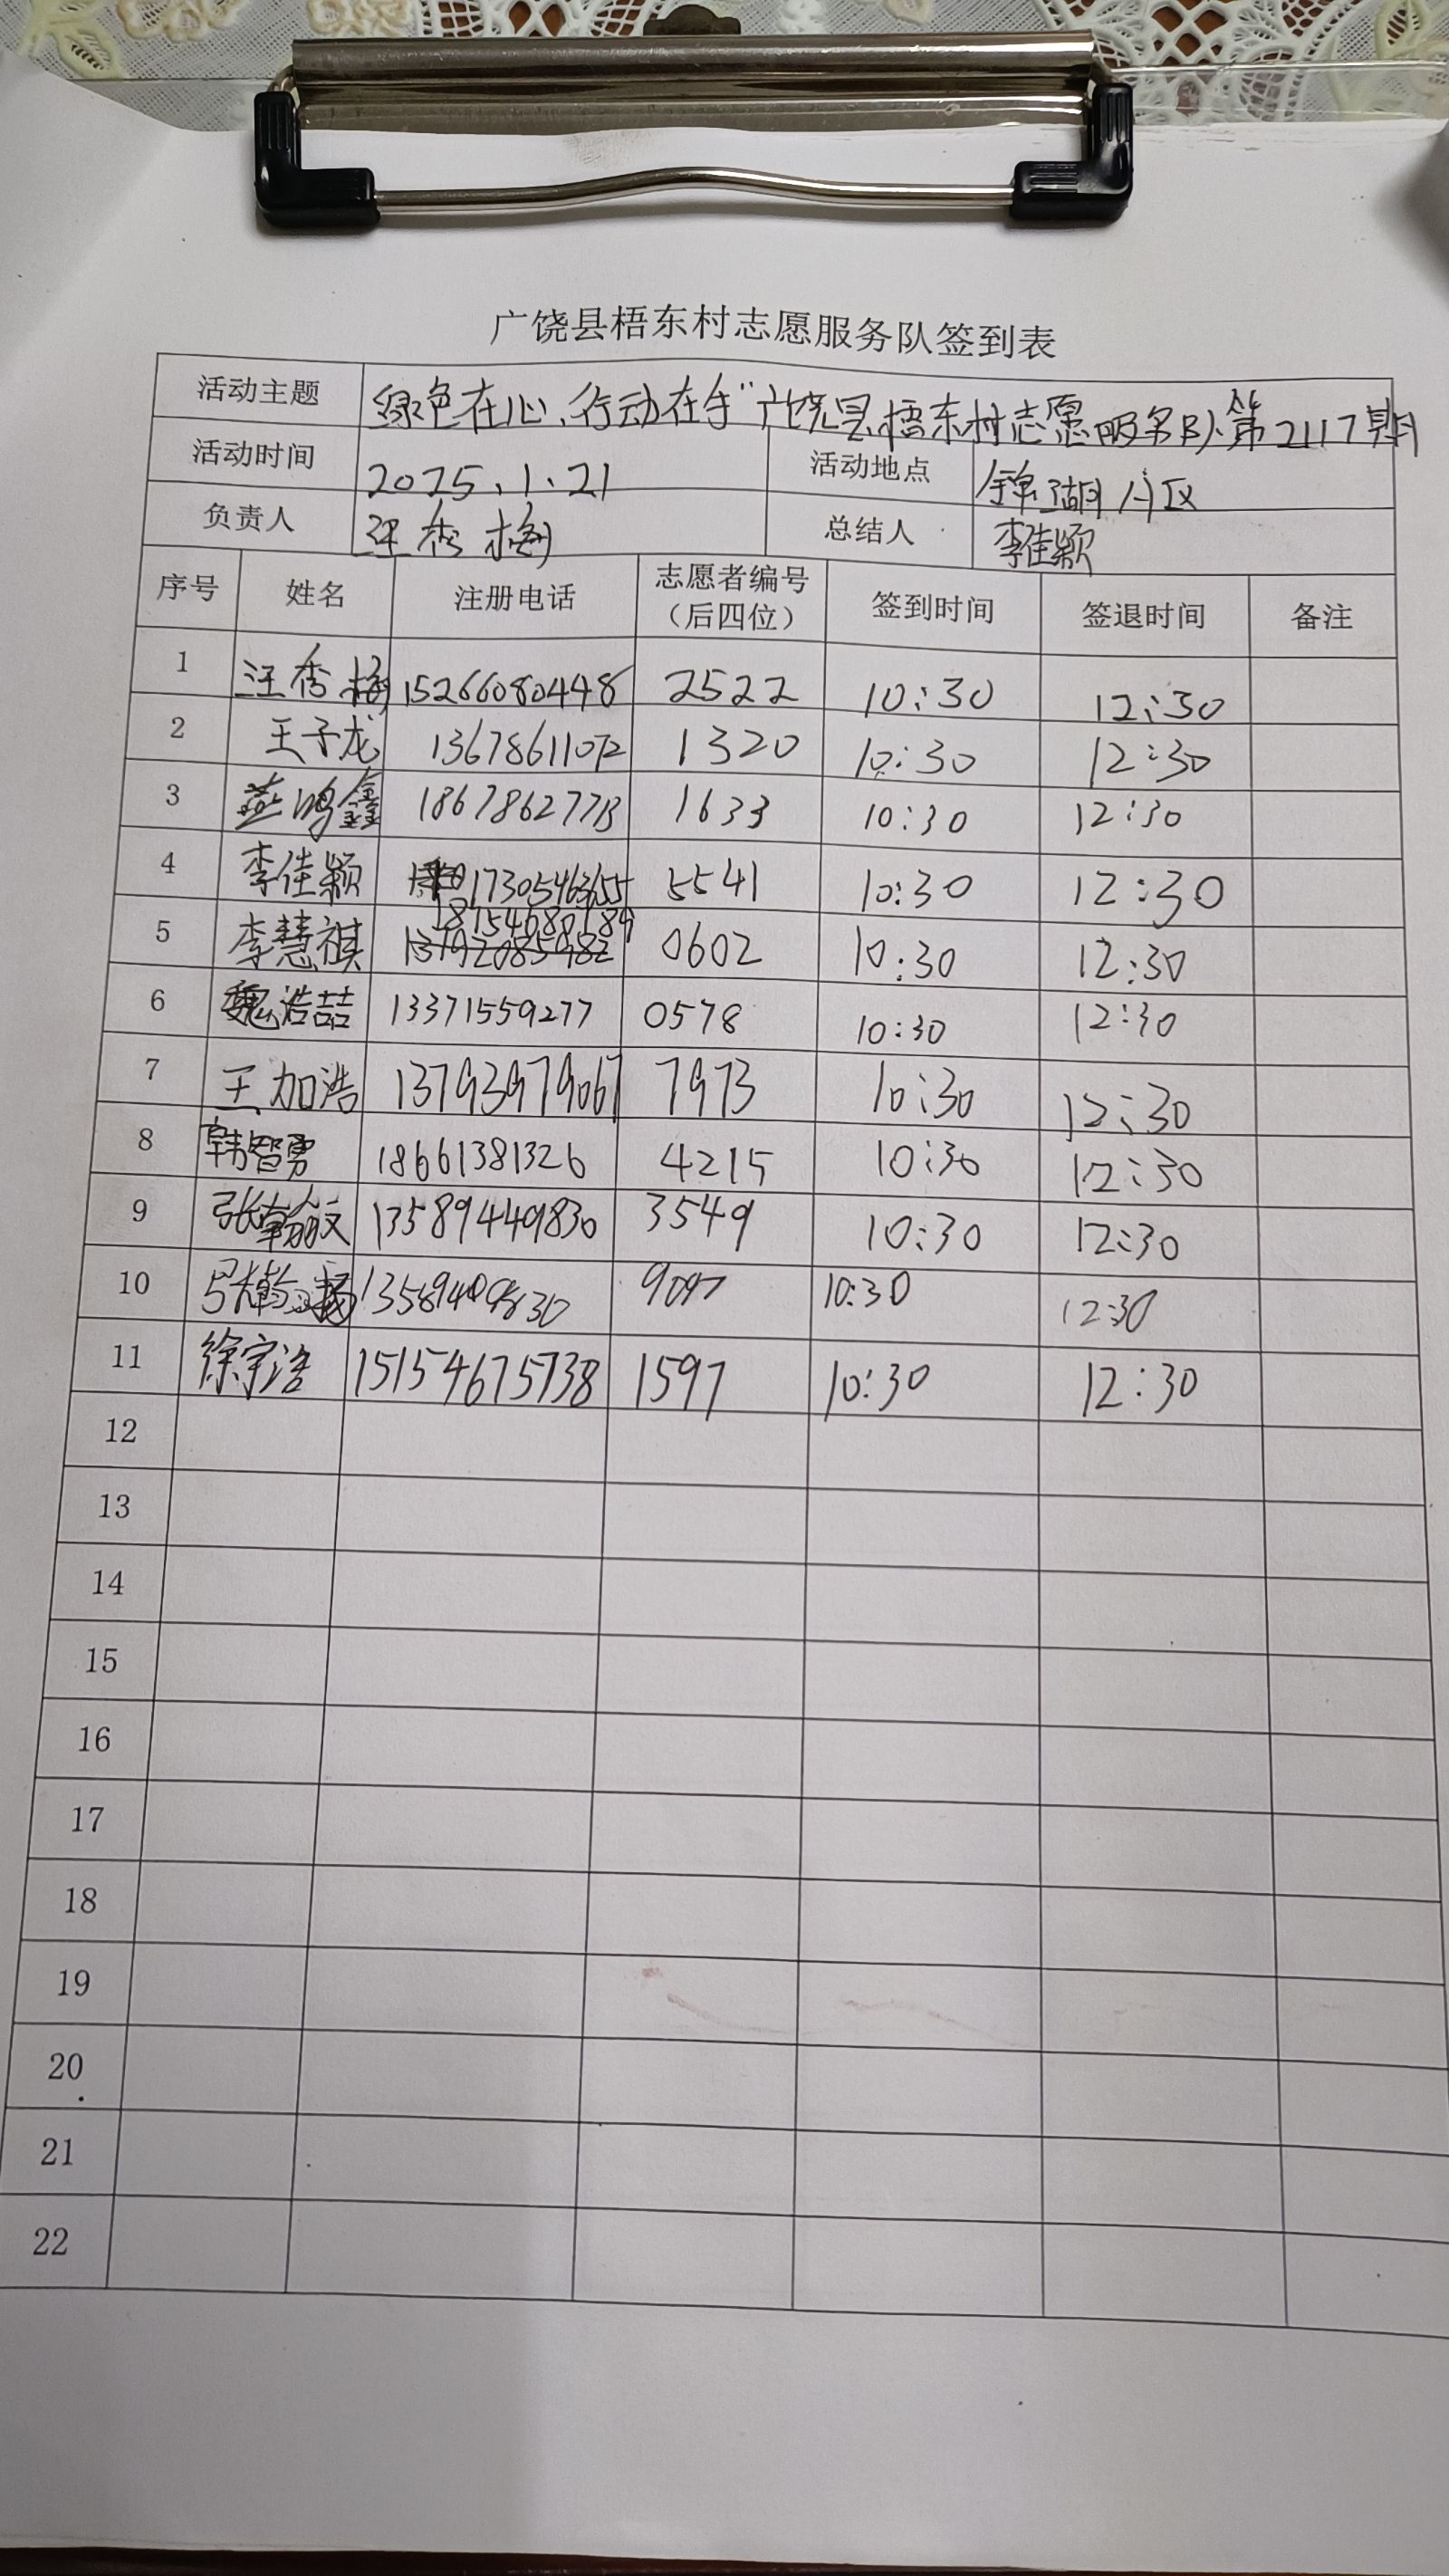 广饶县梧东村志愿服务队签到表
活动主题 绿色在心、行动在手"广饶县梧东村志愿服务队第2117期
活动时间 2025.1.21 活动地点 锦湖片区
负责人 汪秀梅 总结人 李佳颖
序号 姓名 注册电话 志愿者编号（后四位） 签到时间 签退时间 备注
1 汪秀梅 15266080448 2522 10:30 12:30
2 王子龙 13678611072 1320 10:30 12:30
3 燕鸿鑫 18678627713 1633 10:30 12:30
4 李佳颖 17305463155 5541 10:30 12:30
5 李慧祺 18154680189 0602 10:30 12:30
6 魏浩喆 13371559277 0578 10:30 12:30
7 王加浩 13793979067 7973 10:30 12:30
8 韩智勇 18661381326 4215 10:30 12:30
9 张翰文 13589449830 3549 10:30 12:30
10 张翰扬 10:30 12:30
11 徐宇浩 15154675738 1597 10:30 12:30
12
13
14
15
16
17
18
19
20
21
22